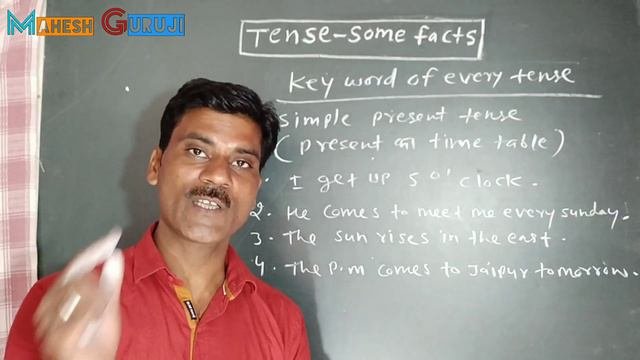 MAHESH GURUJI
Tense-Some facts
Key word of every tense
Simple present tense
(Present का time table)
. I get up 5 o' clock.
2. He comes to meet me every sunday.
3. The sun rises in the east.
4. The P.m comes to Jaipur tomorrow.